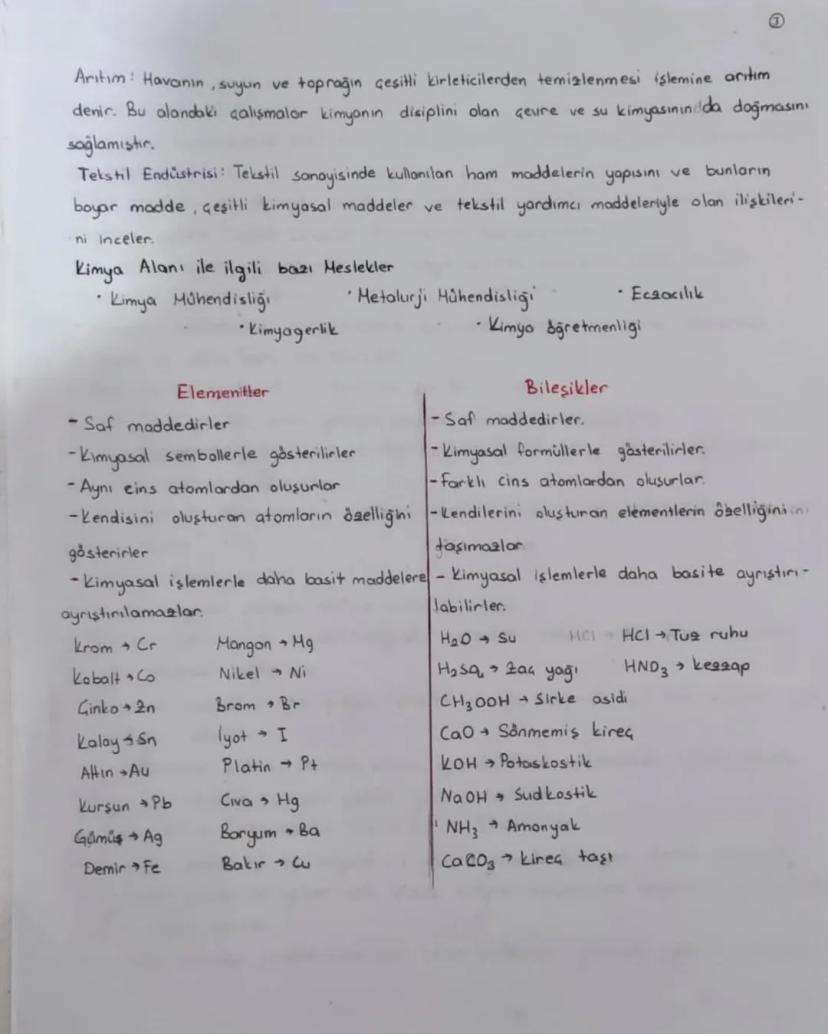 ③
Arıtım: Havanın, suyun ve toprağın çeşitli kirleticilerden temizlenmesi işlemine arıtım
denir. Bu alandaki çalışmalar kimyanın disiplini olan çevre ve su kimyasının da doğmasını
sağlamıştır.
Tekstil Endüstrisi: Tekstil sanayisinde kullanılan ham maddelerin yapısını ve bunların
boyar madde, çeşitli kimyasal maddeler ve tekstil yardımcı maddeleriyle olan ilişkileri-
ni inceler.
Kimya Alanı ile ilgili bazı Meslekler
• Kimya Mühendisliği • Metalurji Mühendisliği • Eczacılık
• Kimyagerlik • Kimya öğretmenligi
Elementler
- Saf maddedirler
- Kimyasal sembollerle gösterilirler
- Aynı cins atomlardan oluşurlar
- Kendisini oluşturan atomların özelliğini
gösterirler
- Kimyasal işlemlerle daha basit maddelere
ayrıştırılamazlar.
Krom → Cr Mangan → Mg
Kobalt → Co Nikel → Ni
Çinko → Zn Brom → Br
Kalay → Sn İyot → I
Altın → Au Platin → Pt
Kurşun → Pb Cıva → Hg
Gümüş → Ag Baryum → Ba
Demir → Fe Bakır → Cu
Bileşikler
- Saf maddedirler.
- Kimyasal formüllerle gösterilirler.
- Farklı cins atomlardan oluşurlar.
- Kendilerini oluşturan elementlerin özelliğini
taşımazlar
- Kimyasal işlemlerle daha basite ayrıştırı-
labilirler.
H₂O → Su HCl → Tuz ruhu
H₂SO₄ → Zaç yağı HNO₃ → kezzap
CH₃OOH → Sirke asidi
CaO → Sönmemiş kireç
KOH → Potaskostik
NaOH → Sudkostik
NH₃ → Amonyak
CaCO₃ → kireç taşı